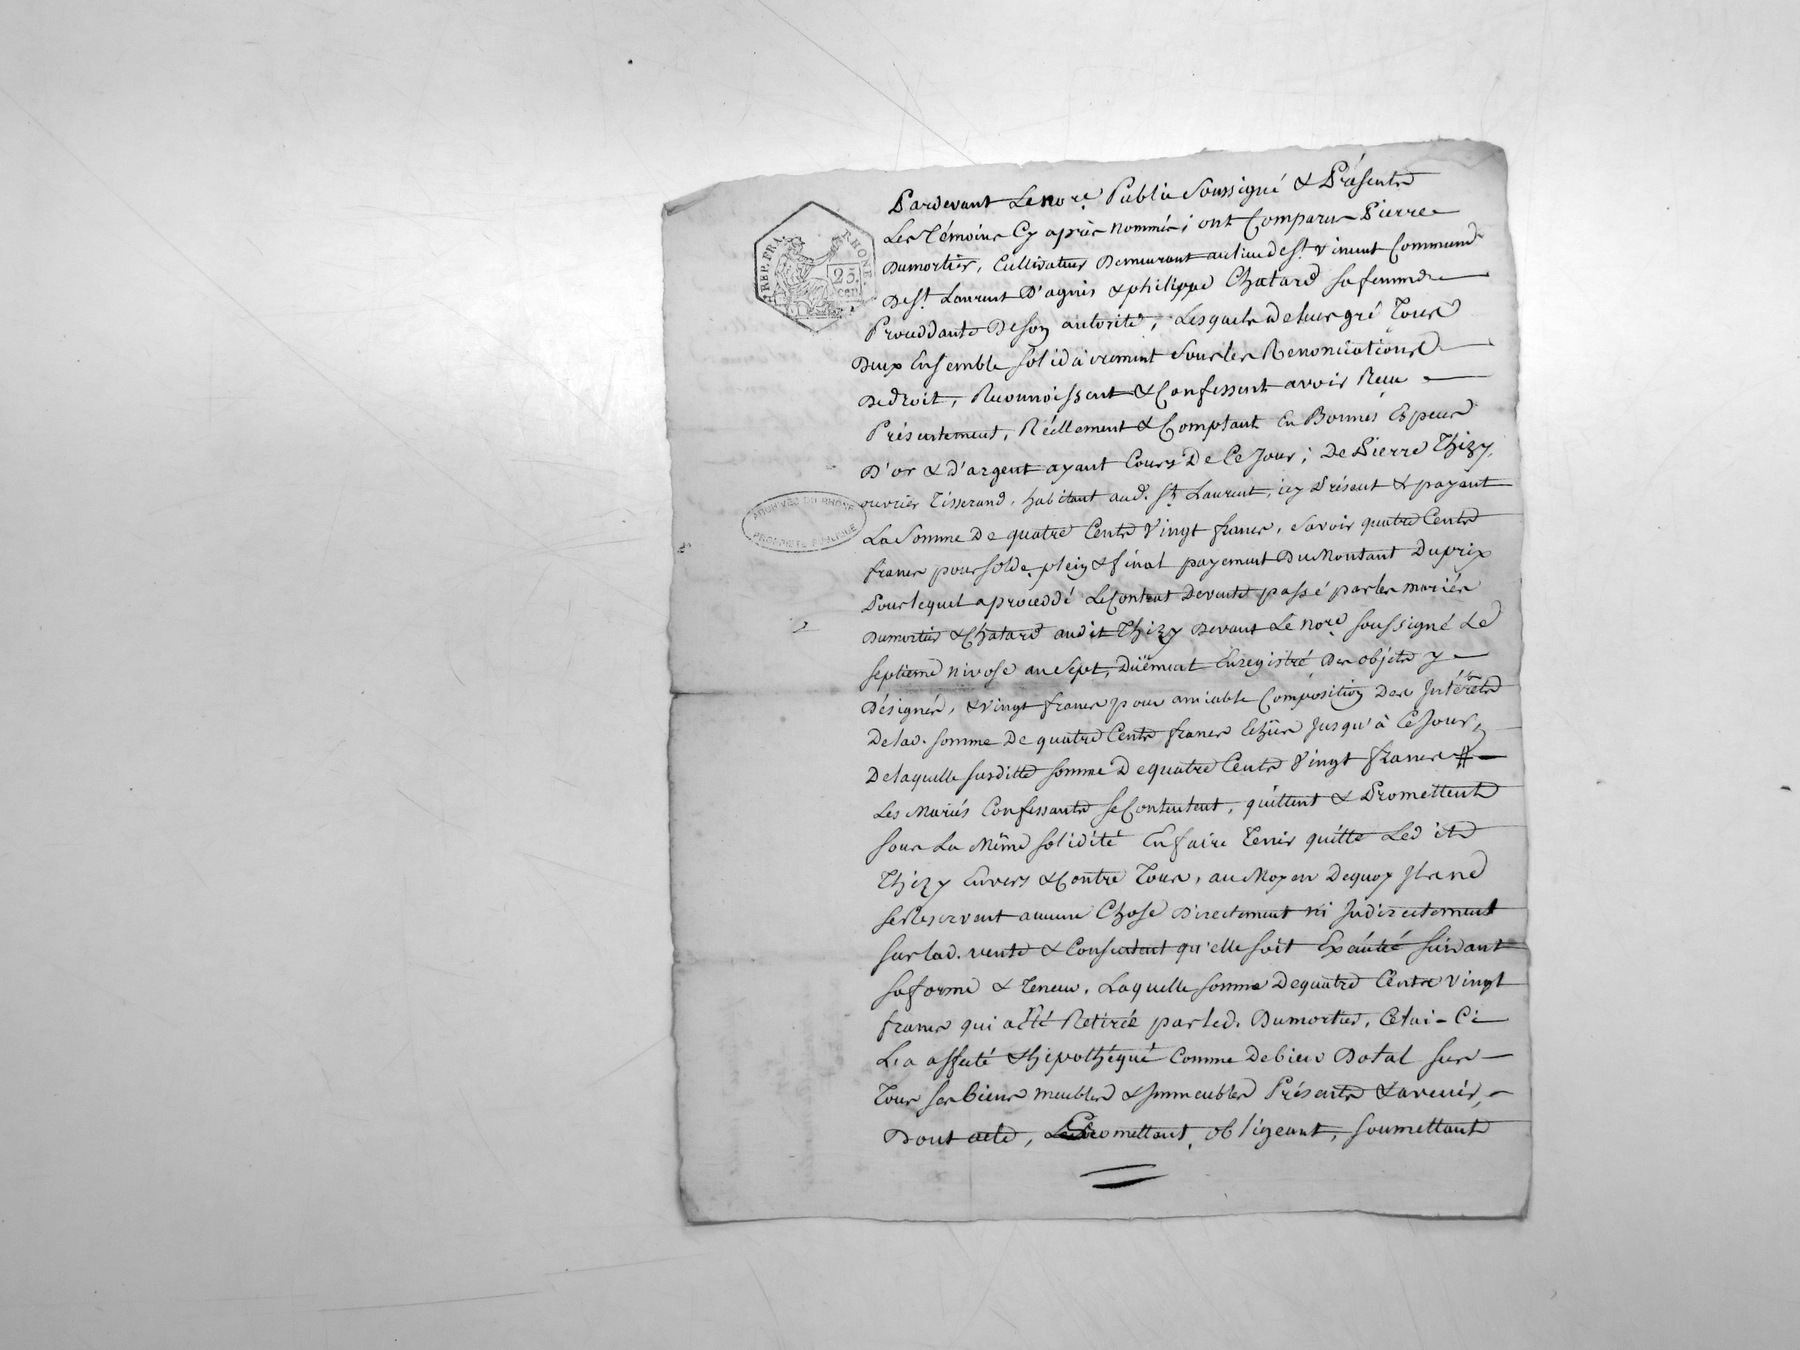 REP. FRA. RHONE
25. cen.
ARCHIVES DU RHONE
PROPRIETE PUBLIQUE
Pardevant Le nore. Public Soussigné & Présents
Les Témoins Cy après nommés; ont Comparu Pierre
Dumortier, Cultivateur Demeurant au lieu de St. Vincent Commune
De St. Laurent D'agnis & philippe Chatard sa femme
Procedante De son autorité, Lesquels de leur gré Tous
Deux Ensemble solidairement Sous les Renonciations
De droit, Reconnoissent & Confessent avoir Reçu
Présentement, Réellement & Comptant En Bonnes Especes
D'or & d'argent ayant Cours De Ce Jour; De Pierre Thizy,
ouvrier Tisserand, habitant aud. St. Laurent, icy Présent & payant
La Somme De quatre Cents Vingt francs, Savoir quatre Cents
francs pour solde, plein & final payement Du Montant Du prix
Pour lequel a procedé Le Contrat De vente passé par les mariés
Dumortier & Chatard audit Thizy Devant Le nore. soussigné Le
septieme nivose an Sept, Düement Enregistré Des objets y
Désignés, & vingt francs pour amiable Composition Des Intérêts
De lad. somme De quatre Cents francs Echüs Jusqu'à Ce Jour,
De laquelle susditte somme De quatre Cents Vingt francs
Les Mariés Confessants se Contentent, quittent & Promettent
sous La Même solidité En faire Tenir quitte Ledit
Thizy Envers & Contre Tous, au Moyen De quoy Ils ne
se Reservent aucune Chose Directement ni Indirectement
sur lad. vente & Consentent qu'elle soit Exécuté suivant
sa forme & Teneur, Laquelle somme De quatre Cents Vingt
francs qui a Eté Retirée par led. Dumortier, Celui-Ci
L'a affecté & hipothéqué Comme De bien Dotal sur
Tous ses biens meubles & Immeubles Présents & avenir,
Dont acte, Promettant, obligeant, soumettant